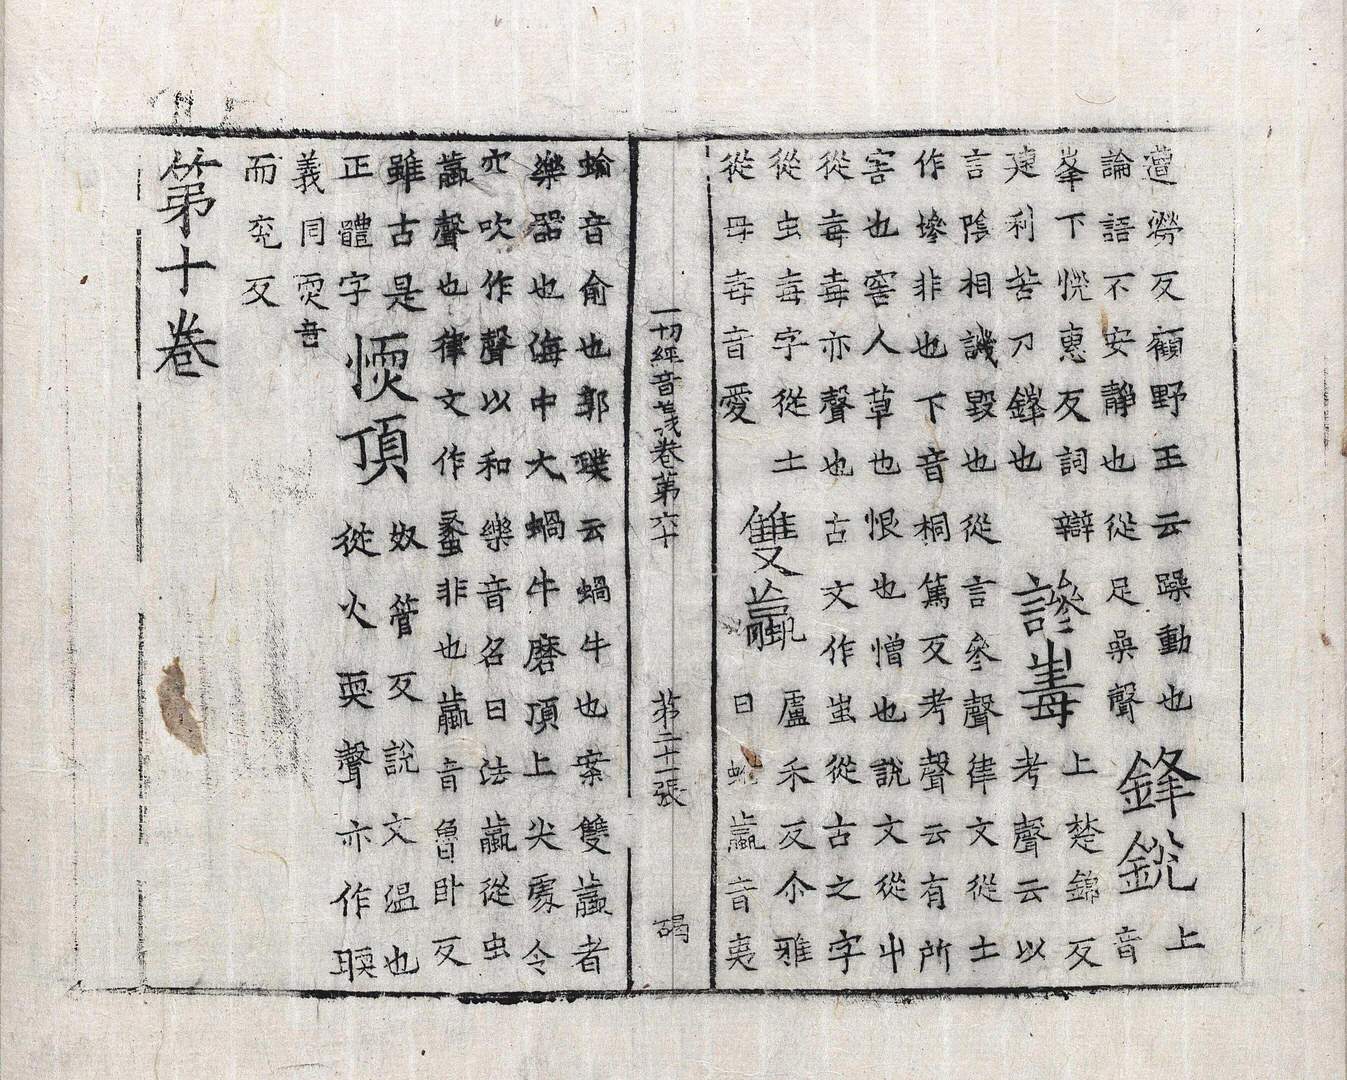 遭勞反顧野王云躁動也 鋒銳 上
論語不安靜也從足喿聲 音
峯下恱惠反詞辯 上楚錦反
遄利苦刀鋒也 譖毒 考聲云以
言陰相譏毀也從言參聲律文從士
作墋非也下音桐篤反考聲云有所
害也害人草也恨也憎也說文從屮
從毒毒亦聲也古文作䖝從古之字
從虫毒字從士 盧禾反尒雅
從毋毒音愛 雙蠃 曰蚹蠃音夷
一切經音義卷第六十 第二十一張 碣
蝓音俞也郭璞云蝸牛也案雙蠃者
樂器也海中大蝸牛磨頂上尖處令
穴吹作聲以和樂音名曰法蠃從虫
蠃聲也律文作蠡非也蠃音魯卧反
雖古是 奴管反說文溫也
正體字 煗頂 從火耎聲亦作䁔
義同耎音
而兖反
第十卷